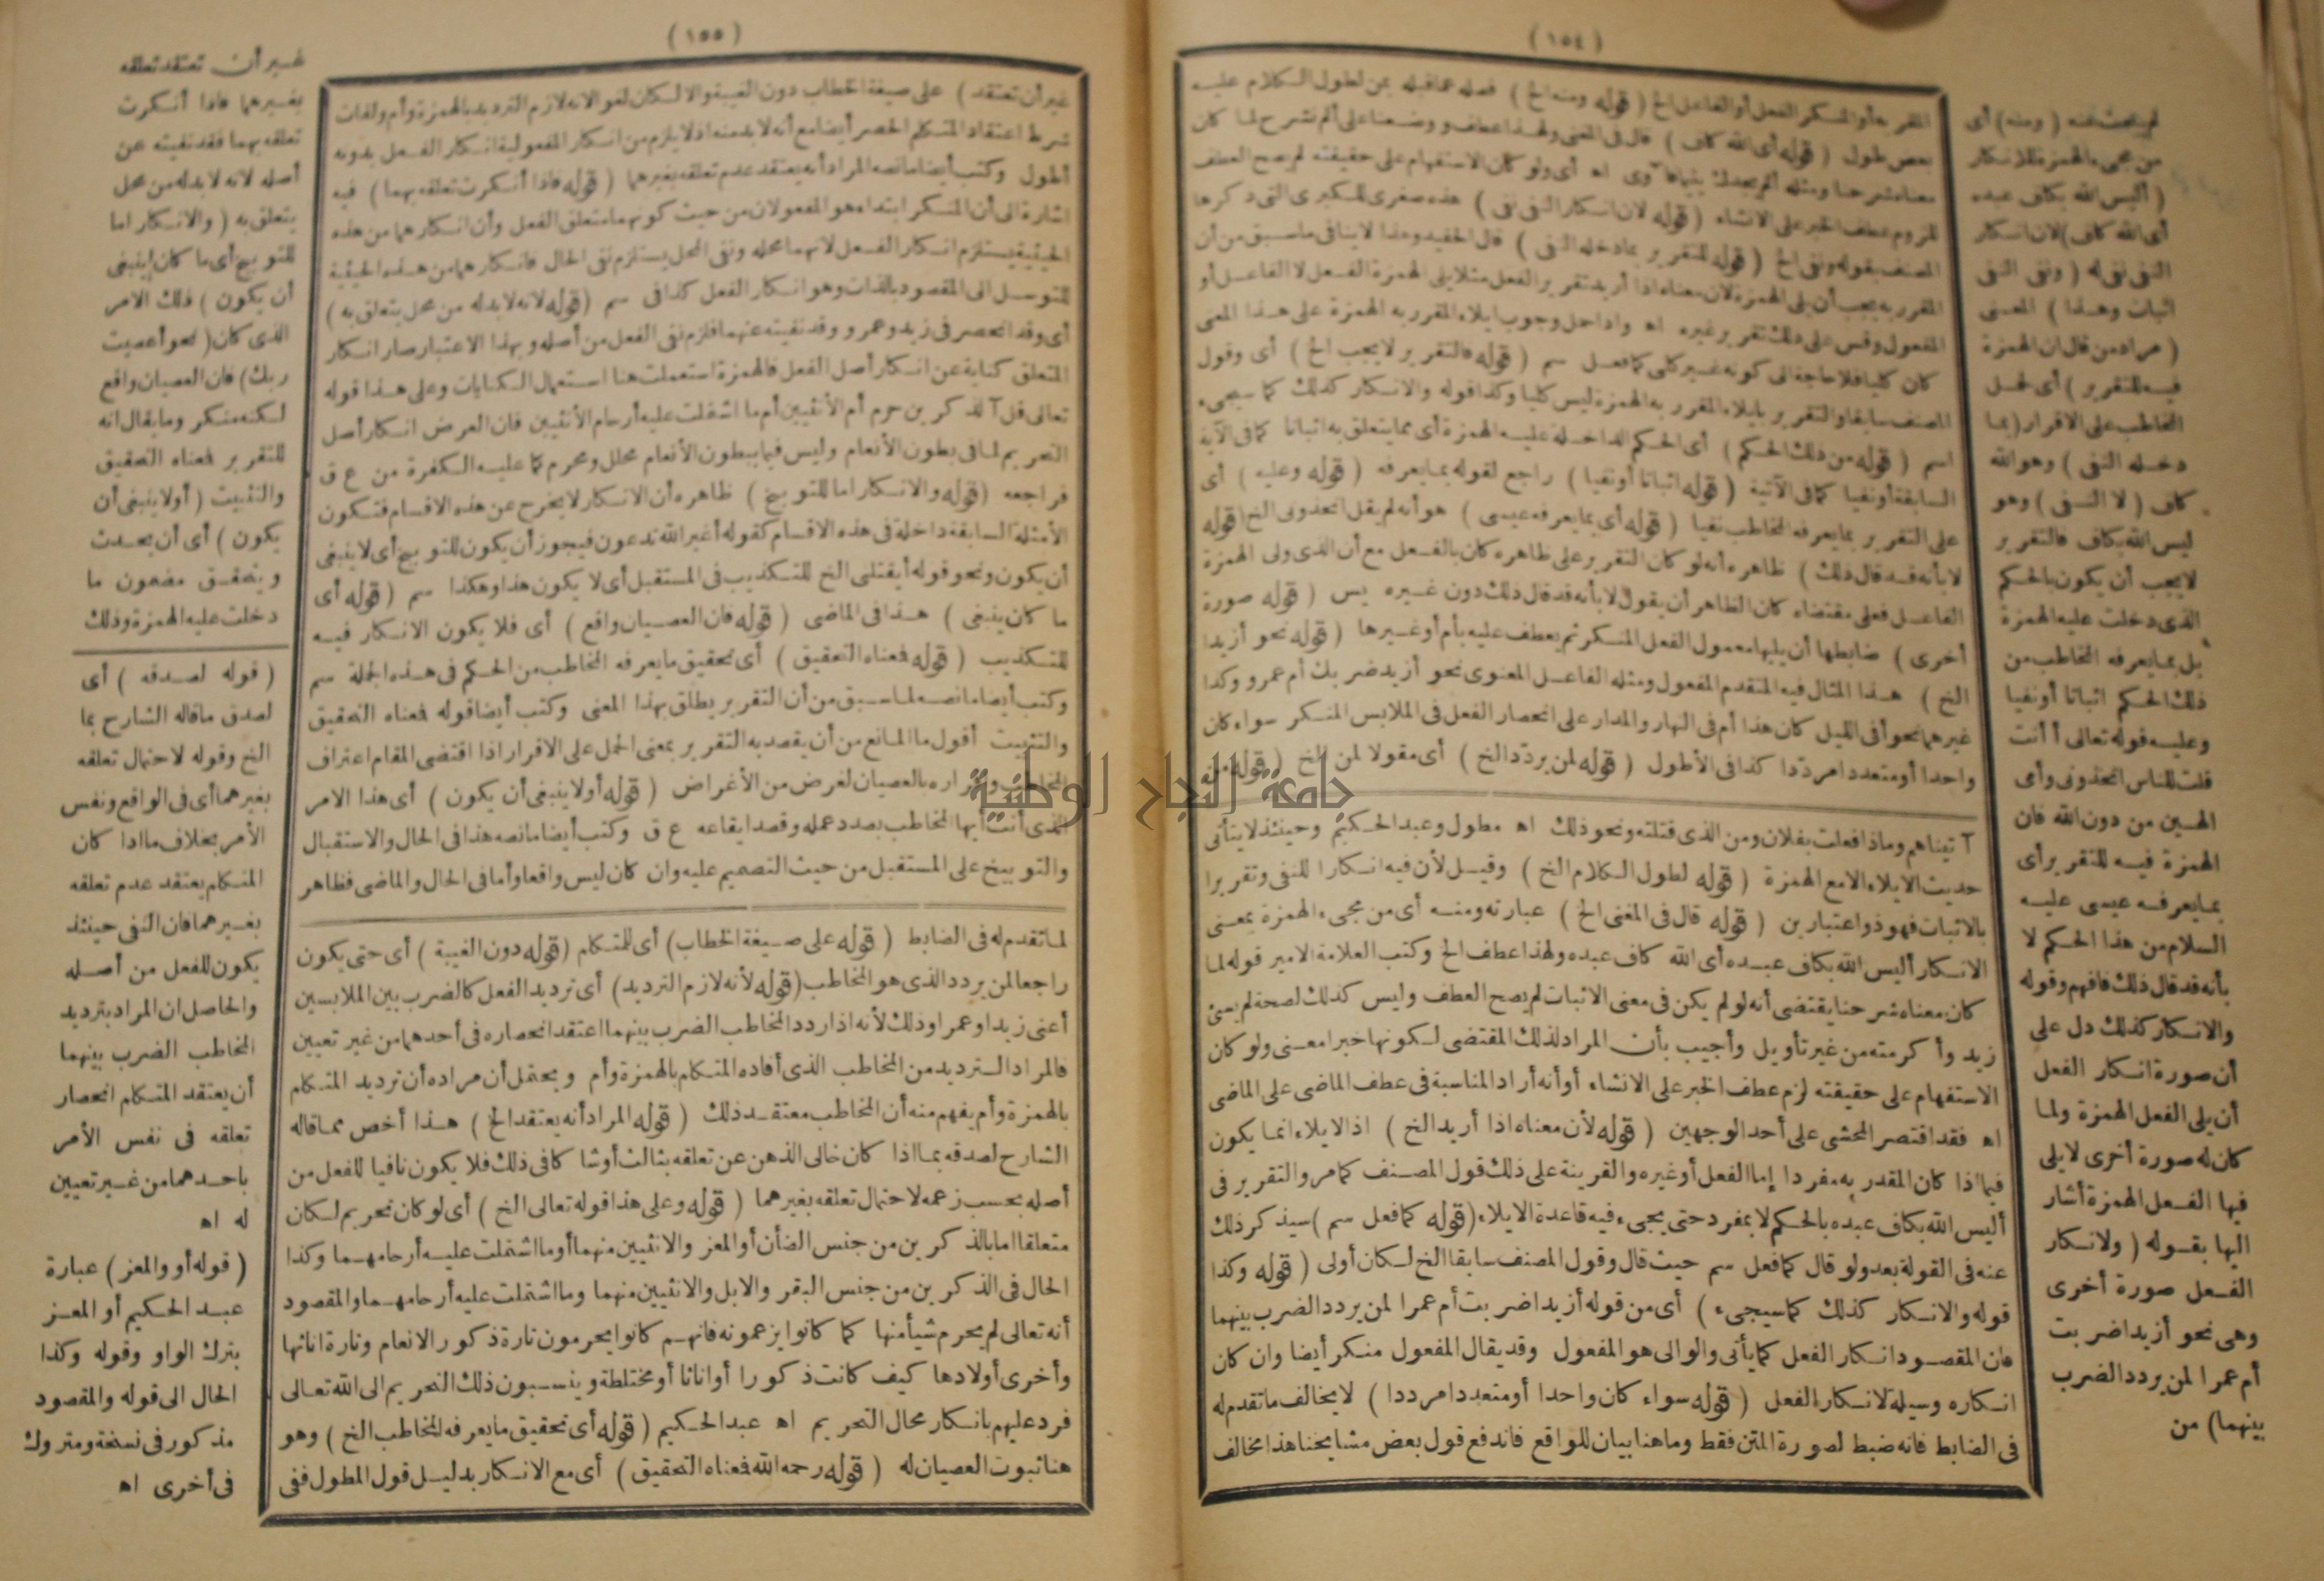 ( ١٥٤ )
لم يبحث عنه ( ومنه ) أى
من مجىء الهمزة للانكار
( أليس الله بكاف عبده
أى الله كاف ) لان انكار
النفى نفى له ( ونفى النفى
اثبات وهذا ) المعنى
( مراد من قال ان الهمزة
فيه للتقرير ) أى لحمل
المخاطب على الاقرار ( بما
دخله النفى ) وهو الله
كاف ( لا النفى ) وهو
ليس الله بكاف فالتقرير
لا يجب أن يكون بالحكم
الذى دخلت عليه الهمزة
بل بما يعرفه المخاطب من
ذلك الحكم اثباتا أو نفيا
وعليه قوله تعالى أأنت
قلت للناس اتخذونى وأمى
الهين من دون الله فان
الهمزة فيه للتقرير أى
بما يعرفه عيسى عليه
السلام من هذا الحكم لا
بأنه قد قال ذلك فافهم وقوله
والانكار كذلك دل على
أن صورة انكار الفعل
أن يلى الفعل الهمزة ولما
كان له صورة أخرى لا يلى
فيها الفعل الهمزة أشار
اليها بقوله ( ولانكار
الفعل صورة أخرى
وهى نحو أزيدا ضربت
أم عمرا لمن يردد الضرب
بينهما ) من
المقرر به أو المنكر الفعل أو الفاعل الخ ( قوله ومنه الخ ) فصله عما قبله بمن لطول الكلام عليه
بعض طول ( قوله أى الله كاف ) قال فى المغنى ولهذا عطف ووضعنا على ألم نشرح لما كان
معناه شرحنا ومثله ألم يجدك يتيما فآوى اه أى ولو كان الاستفهام على حقيقته لم يصح العطف
للزوم عطف الخبر على الانشاء ( قوله لان انكار النفى نفى ) هذه صغرى للكبرى التى ذكرها
المصنف بقوله ونفى الخ ( قوله للتقرير بما دخله النفى ) قال الحفيد وهذا لا ينافى ما سبق من أن
المقرر به يجب أن يلى الهمزة لان معناه اذا أريد تقرير الفعل مثلا يلى الهمزة الفعل لا الفاعل أو
المفعول وقس على ذلك تقرير غيره اه واذا حمل وجوب ايلاء المقرر به الهمزة على هذا المعنى
كان كليا فلا حاجة الى كونه غير كلى كما فعل سم ( قوله فالتقرير لا يجب الخ ) أى وقول
المصنف سابقا والتقرير بايلاء المقرر به الهمزة ليس كليا وكذا قوله والانكار كذلك كما سيجىء
اسم ( قوله من ذلك الحكم ) أى الحكم الداخلة عليه الهمزة أى مما يتعلق به اثباتا كما فى الآية
السابقة أو نفيا كما فى الآتية ( قوله اثباتا أو نفيا ) راجع لقوله بما يعرفه ( قوله وعليه ) أى
على التقرير بما يعرفه المخاطب نفيا ( قوله أى بما يعرفه عيسى ) هو أنه لم يقل اتخذونى الخ ( قوله
لا بأنه قد قال ذلك ) ظاهره أنه لو كان التقرير على ظاهره كان بالفعل مع أن الذى ولى الهمزة
الفاعل فعلى مقتضاه كان الظاهر أن يقول لا بأنه قد قال ذلك دون غيره يس ( قوله صورة
أخرى ) ضابطها أن يليها معمول الفعل المنكر ثم يعطف عليه بأم أو غيرها ( قوله نحو أزيدا
الخ ) هذا المثال فيه المتقدم المفعول ومثله الفاعل المعنوى نحو أزيد ضربك أم عمرو وكذا
غيرهما نحو أفى الليل كان هذا أم فى النهار والمدار على انحصار الفعل فى الملابس المنكر سواء كان
واحدا أو متعددا مرددا كذا فى الأطول ( قوله لمن يردد الخ ) أى مقولا لمن الخ ( قوله من
آتيناهم وماذا فعلت بفلان ومن الذى قتلته ونحو ذلك اه مطول وعبد الحكيم وحينئذ لا يتأتى
حديث الايلاء الا مع الهمزة ( قوله لطول الكلام الخ ) وقيل لأن فيه انكارا للنفى وتقريرا
بالاثبات فهو ذو اعتبارين ( قوله قال فى المغنى الخ ) عبارته ومنه أى من مجىء الهمزة بمعنى
الانكار أليس الله بكاف عبده أى الله كاف عبده ولهذا عطف الخ وكتب العلامة الامير قوله لما
كان معناه شرحنا يقتضى أنه لو لم يكن فى معنى الاثبات لم يصح العطف وليس كذلك لصحة لم يجئ
زيد وأكرمته من غير تأويل وأجيب بأن المراد لذلك المقتضى لكونها خبرا معنى ولو كان
الاستفهام على حقيقته لزم عطف الخبر على الانشاء أو أنه أراد المناسبة فى عطف الماضى على الماضى
اه فقد اقتصر المحشى على أحد الوجهين ( قوله لأن معناه اذا أريد الخ ) اذ الايلاء انما يكون
فيما اذا كان المقدر به مفردا إما الفعل أو غيره والقرينة على ذلك قول المصنف كما مر والتقرير فى
أليس الله بكاف عبده بالحكم لا بمفرد حتى يجىء فيه قاعدة الايلاء ( قوله كما فعل سم ) سيذكر ذلك
عنه فى القولة بعد ولو قال كما فعل سم حيث قال وقول المصنف سابقا الخ لكان أولى ( قوله وكذا
قوله والانكار كذلك كما سيجىء ) أى من قوله أزيدا ضربت أم عمرا لمن يردد الضرب بينهما
فان المقصود انكار الفعل كما يأتى والوالى هو المفعول وقد يقال المفعول منكر أيضا وان كان
انكاره وسيلة لانكار الفعل ( قوله سواء كان واحدا أو متعددا مرددا ) لا يخالف ما تقدم له
فى الضابط فانه ضبط لصورة المتن فقط وما هنا بيان للواقع فاندفع قول بعض مشايخنا هذا مخالف
( ١٥٥ )
غير أن تعتقد ) على صيغة الخطاب دون الغيبة والا لكان لغوا لانه لازم الترديد بالهمزة وأم ولفات
شرط اعتقاد المتكلم الحصر أيضا مع أنه لا بد منه اذ لا يلزم من انكار المفعولية انكار الفعل بدونه
أطول وكتب أيضا ما نصه المراد أنه يعتقد عدم تعلقه بغيرهما ( قوله فاذا أنكرت تعلقه بهما ) فيه
اشارة الى أن المنكر ابتداء هو المفعولان من حيث كونهما متعلق الفعل وأن انكارهما من هذه
الحيثية يستلزم انكار الفعل لانهما محله ونفى المحل يستلزم نفى الحال فانكارهما من هذه الحيثية
للتوسل الى المقصود بالذات وهو انكار الفعل كذا فى سم ( قوله لانه لا بد له من محل يتعلق به )
أى وقد انحصر فى زيد وعمرو وقد نفيته عنهما فلزم نفى الفعل من أصله وبهذا الاعتبار صار انكار
المتعلق كناية عن انكار أصل الفعل فالهمزة استعملت هنا استعمال الكنايات وعلى هذا قوله
تعالى قل آلذكرين حرم أم الأنثيين أم ما اشتملت عليه أرحام الأنثيين فان الغرض انكار أصل
التحريم لما فى بطون الأنعام وليس فيما ببطون الأنعام محلل ومحرم كما عليه الكفرة من ع ق
فراجعه ( قوله والانكار اما للتوبيخ ) ظاهره أن الانكار لا يخرج عن هذه الاقسام فتكون
الأمثلة السابقة داخلة فى هذه الاقسام كقوله أغير الله تدعون فيجوز أن يكون للتوبيخ أى لا ينبغى
أن يكون ونحو قوله أيقتلنى الخ للتكذيب فى المستقبل أى لا يكون هذا وهكذا سم ( قوله أى
ما كان ينبغى ) هذا فى الماضى ( قوله فان العصيان واقع ) أى فلا يكون الانكار فيه
للتكذيب ( قوله فمعناه التحقيق ) أى تحقيق ما يعرفه المخاطب من الحكم فى هذه الجملة سم
وكتب أيضا ما نصه لما سبق من أن التقرير يطلق بهذا المعنى وكتب أيضا قوله فمعناه التحقيق
والتثبيت أقول ما المانع من أن يقصد به التقرير بمعنى الحمل على الاقرار اذا اقتضى المقام اعتراف
المخاطب واقراره بالعصيان لغرض من الأغراض ( قوله أو لا ينبغى أن يكون ) أى هذا الامر
الذى أنت أيها المخاطب بصدد عمله وقصد ايقاعه ع ق وكتب أيضا ما نصه هذا فى الحال والاستقبال
والتوبيخ على المستقبل من حيث التصميم عليه وان كان ليس واقعا وأما فى الحال والماضى فظاهر
لما تقدم له فى الضابط ( قوله على صيغة الخطاب ) أى للمتكلم ( قوله دون الغيبة ) أى حتى يكون
راجعا لمن يردد الذى هو المخاطب ( قوله لأنه لازم الترديد ) أى ترديد الفعل كالضرب بين الملابسين
أعنى زيدا وعمرا وذلك لأنه اذا ردد المخاطب الضرب بينهما اعتقد انحصاره فى أحدهما من غير تعيين
فالمراد الترديد من المخاطب الذى أفاده المتكلم بالهمزة وأم ويحتمل أن مراده أن ترديد المتكلم
بالهمزة وأم يفهم منه أن المخاطب معتقد ذلك ( قوله المراد أنه يعتقد الخ ) هذا أخص مما قاله
الشارح لصدقه بما اذا كان خالى الذهن عن تعلقه بثالث أو شا كا فى ذلك فلا يكون نافيا للفعل من
أصله بحسب زعمه لاحتمال تعلقه بغيرهما ( قوله وعلى هذا قوله تعالى الخ ) أى لو كان تحريم لكان
متعلقا اما بالذكرين من جنس الضأن أو المعز والانثيين منهما أو ما اشتملت عليه أرحامهما وكذا
الحال فى الذكرين من جنس البقر والابل والانثيين منهما وما اشتملت عليه أرحامهما والمقصود
أنه تعالى لم يحرم شيأ منها كما كانوا يزعمونه فانهم كانوا يحرمون تارة ذكور الانعام وتارة اناثها
وأخرى أولادها كيف كانت ذكورا أو اناثا أو مختلطة وينسبون ذلك التحريم الى الله تعالى
فرد عليهم بانكار محال التحريم اه عبد الحكيم ( قوله أى تحقيق ما يعرفه المخاطب الخ ) وهو
هنا ثبوت العصيان له ( قوله رحمه الله فمعناه التحقيق ) أى مع الانكار بدليل قول المطول ففى
غير أن تعتقد تعلقه
بغيرهما فاذا أنكرت
تعلقه بهما فقد نفيته عن
أصله لانه لا بد له من محل
يتعلق به ( والانكار اما
للتوبيخ أى ما كان ينبغى
أن يكون ) ذلك الامر
الذى كان ( نحو أعصيت
ربك ) فان العصيان واقع
لكنه منكر وما يقال انه
للتقرير فمعناه التحقيق
والتثبيت ( أو لا ينبغى أن
يكون ) أى أن يحدث
ويتحقق مضمون ما
دخلت عليه الهمزة وذلك
( قوله لصدقه ) أى
لصدق ما قاله الشارح بما
الخ وقوله لاحتمال تعلقه
بغيرهما أى فى الواقع ونفس
الأمر بخلاف ما اذا كان
المتكلم يعتقد عدم تعلقه
بغيرهما فان النفى حينئذ
يكون للفعل من أصله
والحاصل ان المراد بترديد
المخاطب الضرب بينهما
أن يعتقد المتكلم انحصار
تعلقه فى نفس الأمر
باحدهما من غير تعيين
له اه
( قوله أو والمعز ) عبارة
عبد الحكيم أو المعز
بترك الواو وقوله وكذا
الحال الى قوله والمقصود
مذكور فى نسخة ومتروك
فى أخرى اه
جامعة النجاح الوطنية